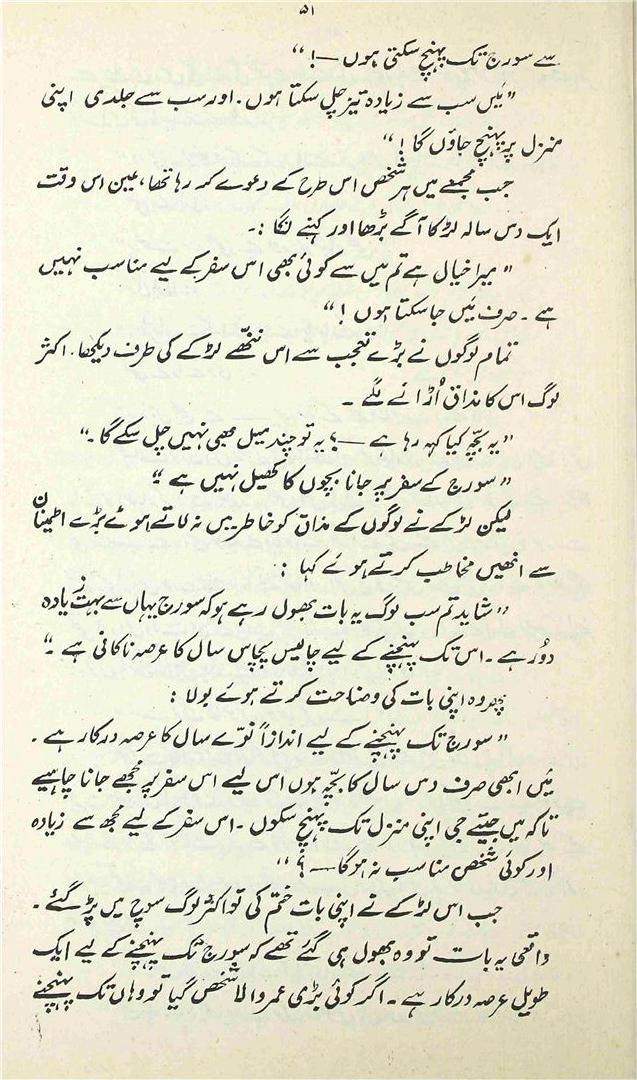 ۵۱
سے سورج تک پہنچ سکتی ہوں —! “
”میں سب سے زیادہ تیز چل سکتا ہوں۔ اور سب سے جلدی اپنی
منزل پر پہنچ جاؤں گا ! “
جب مجمعے میں ہر شخص اس طرح کے دعوے کر رہا تھا، عین اس وقت
ایک دس سالہ لڑکا آگے بڑھا اور کہنے لگا :۔
” میرا خیال ہے تم میں سے کوئی بھی اس سفر کے لیے مناسب نہیں
ہے ۔ صرف میں جا سکتا ہوں ! “
تمام لوگوں نے بڑے تعجب سے اس ننھے لڑکے کی طرف دیکھا۔ اکثر
لوگ اس کا مذاق اُڑانے لگے ۔
” یہ بچّہ کیا کہہ رہا ہے —؟ یہ تو چند میل بھی نہیں چل سکے گا ۔“
” سورج کے سفر پر جانا بچوں کا کھیل نہیں ہے ۔“
لیکن لڑکے نے لوگوں کے مذاق کو خاطر میں نہ لاتے ہوئے بڑے اطمینان
سے انھیں مخاطب کرتے ہوئے کہا :
” شاید تم سب لوگ یہ بات بھول رہے ہو کہ سورج یہاں سے بہت زیادہ
دُور ہے ۔ اس تک پہنچنے کے لیے چالیس پچاس سال کا عرصہ ناکافی ہے ۔“
پھر وہ اپنی بات کی وضاحت کرتے ہوئے بولا :
” سورج تک پہنچنے کے لیے اندازاً نوّے سال کا عرصہ درکار ہے ۔
میں ابھی صرف دس سال کا بچّہ ہوں اس لیے اس سفر پر مجھے جانا چاہیے
تاکہ میں جیتے جی اپنی منزل تک پہنچ سکوں ۔ اس سفر کے لیے مجھ سے زیادہ
اور کوئی شخص مناسب نہ ہوگا —؟ “
جب اس لڑکے نے اپنی بات ختم کی تو اکثر لوگ سوچ میں پڑ گئے ۔
واقعی یہ بات تو وہ بھول ہی گئے تھے کہ سورج تک پہنچنے کے لیے ایک
طویل عرصہ درکار ہے ۔ اگر کوئی بڑی عمر والا شخص گیا تو وہاں تک پہنچنے